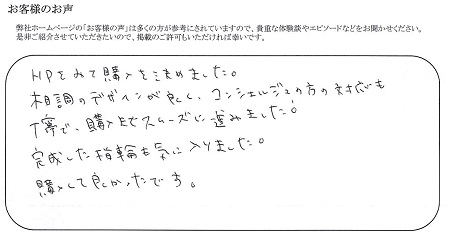 お客様のお声
弊社ホームページの「お客様の声」は多くの方が参考にされていますので、貴重な体験談やエピソードなどをお聞かせください。
是非ご紹介させていただきたいので、掲載のご許可もいただければ幸いです。
HPをみて購入を決めました。
相調のデザインが良く、コンシェルジュの方の対応も
丁寧で、購入までスムーズに進みました!
完成した指輪も気に入りました。
購入して良かったです。